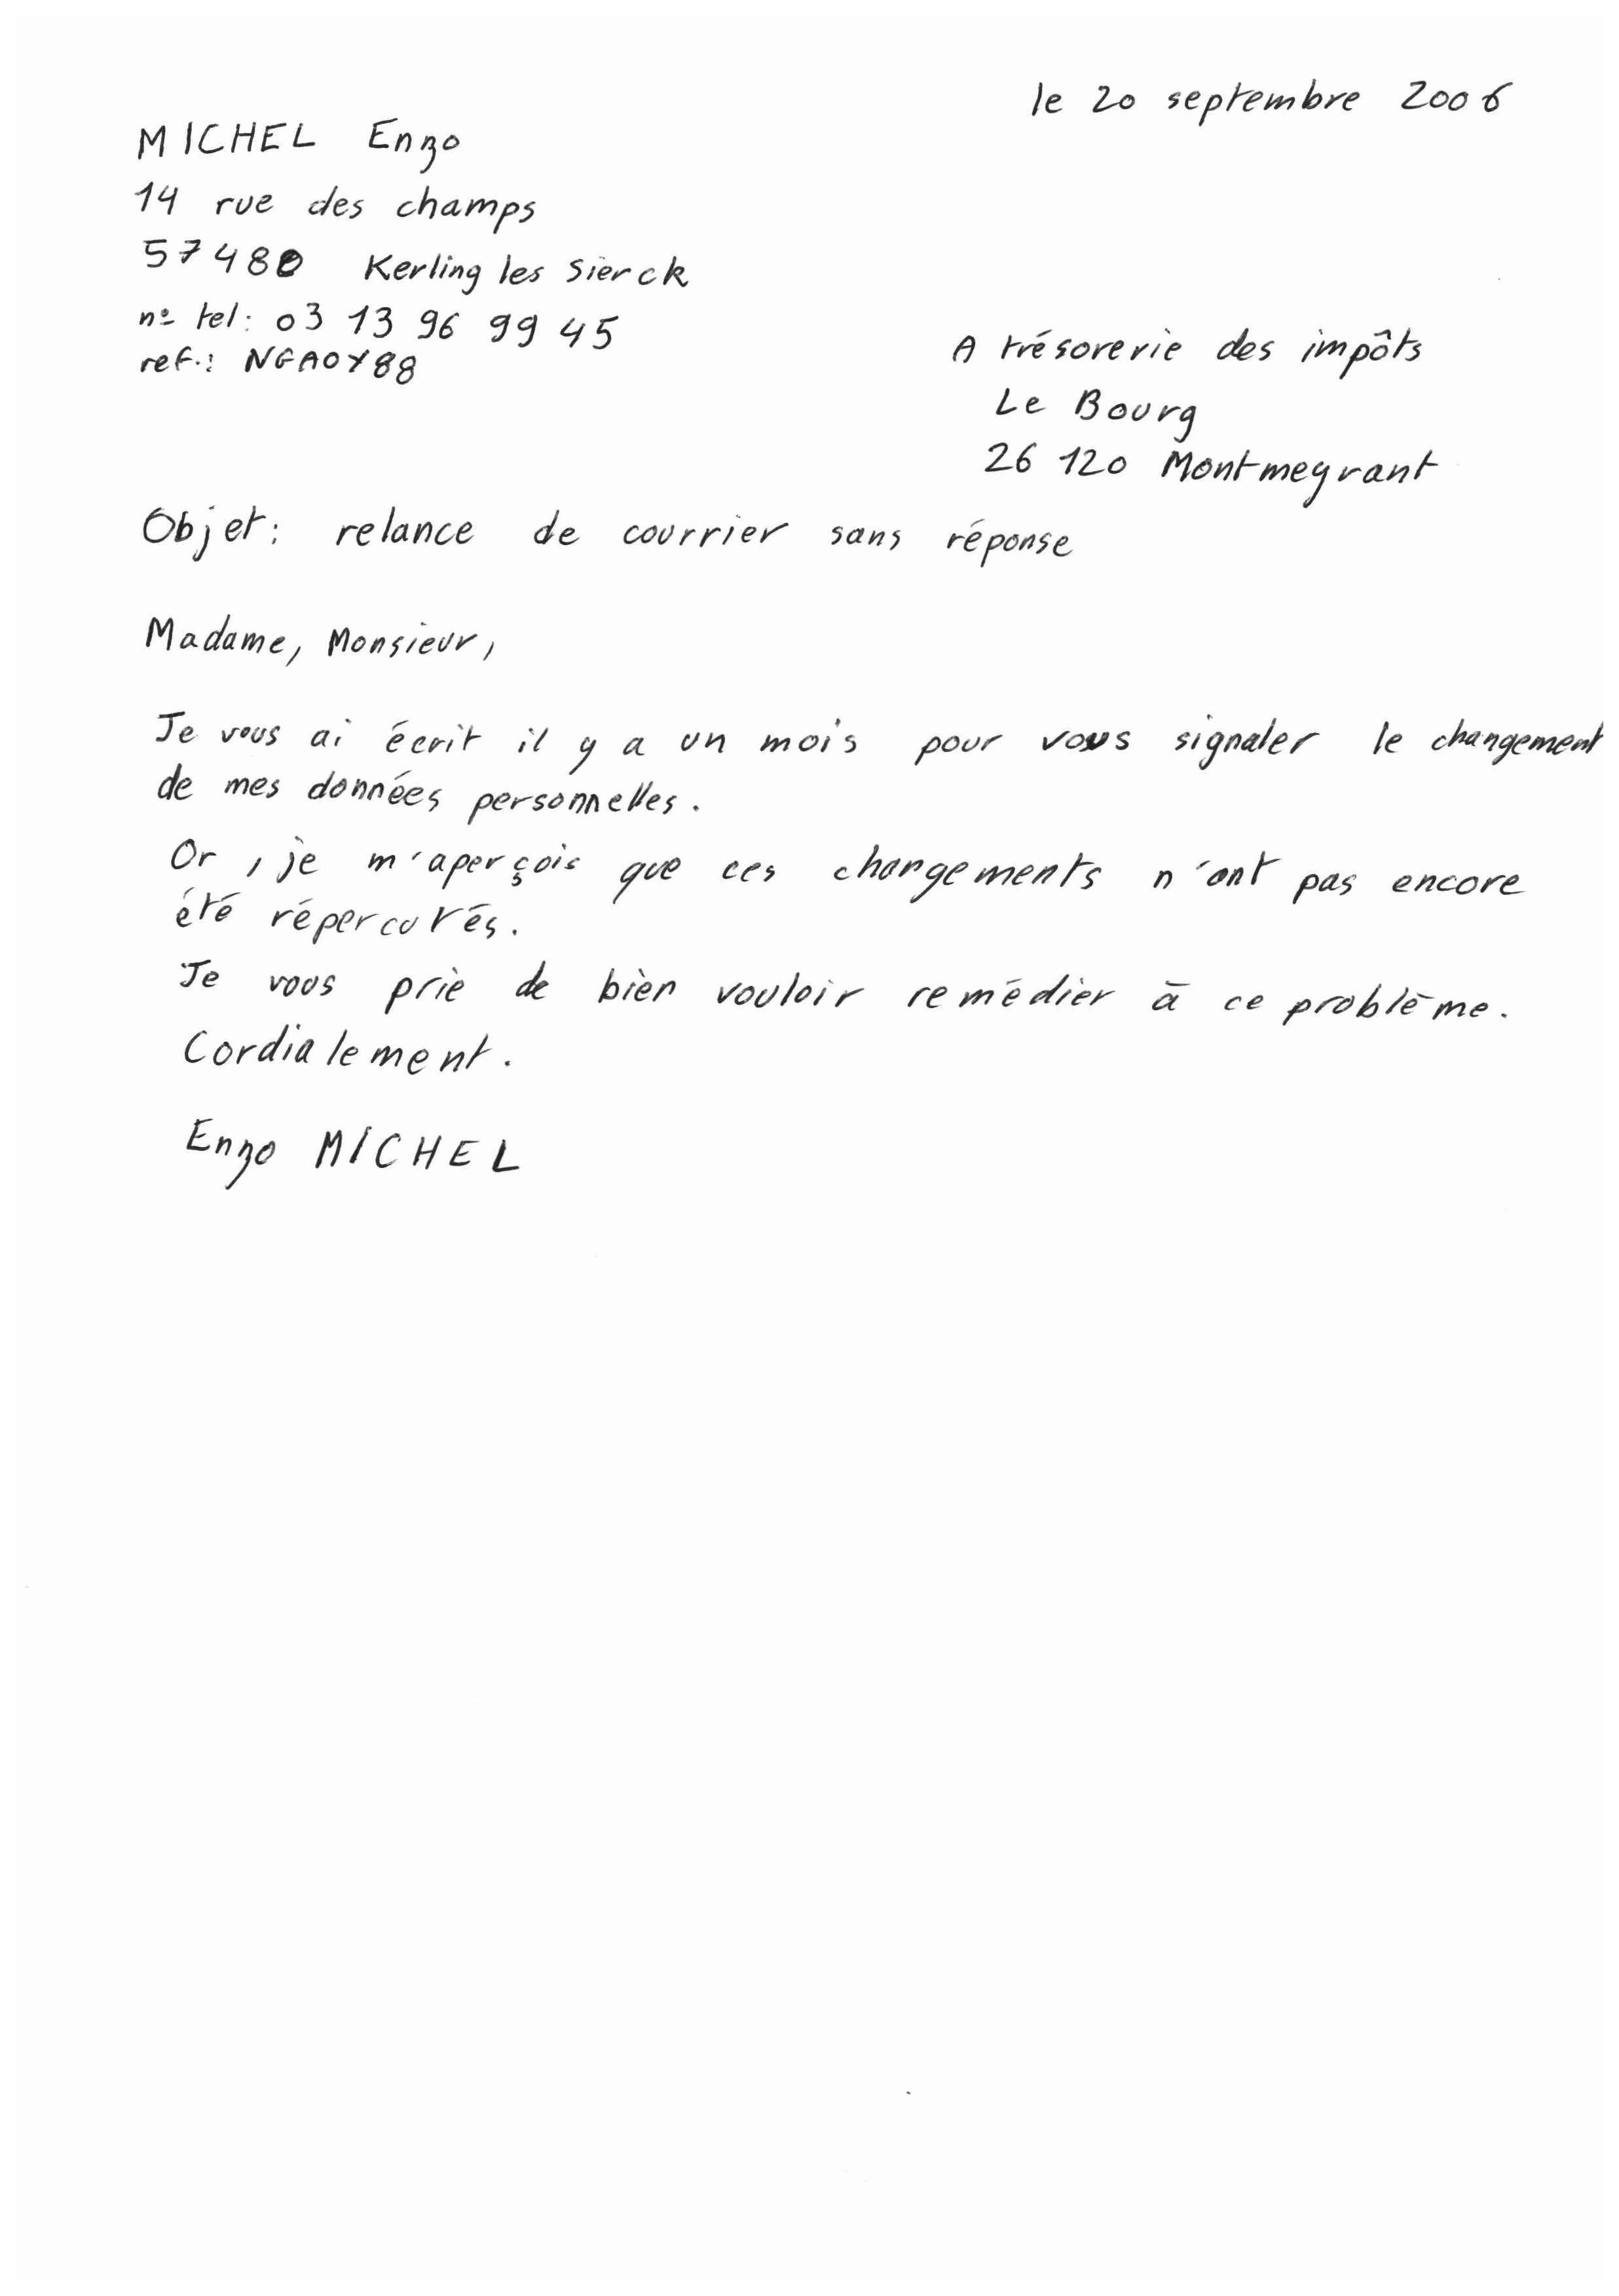 le 20 septembre 2006
MICHEL Enzo
14 rue des champs
57480 Kerling les Sierck
n° tel: 03 13 96 99 45
ref.: NGAOY88
A trésorerie des impôts
Le Bourg
26 120 Montmeyrant
Objet: relance de courrier sans réponse
Madame, Monsieur,
Je vous ai écrit il y a un mois pour vous signaler le changement
de mes données personnelles.
Or, je m'aperçois que ces changements n'ont pas encore
été répercutés.
Je vous prie de bien vouloir remédier à ce problème.
Cordialement.
Enzo MICHEL